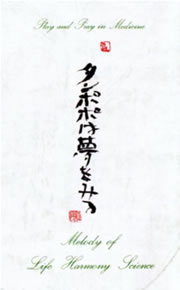 Play and Pray in Medicine
タンポポは夢をみる
Melody of
Life Harmony Science